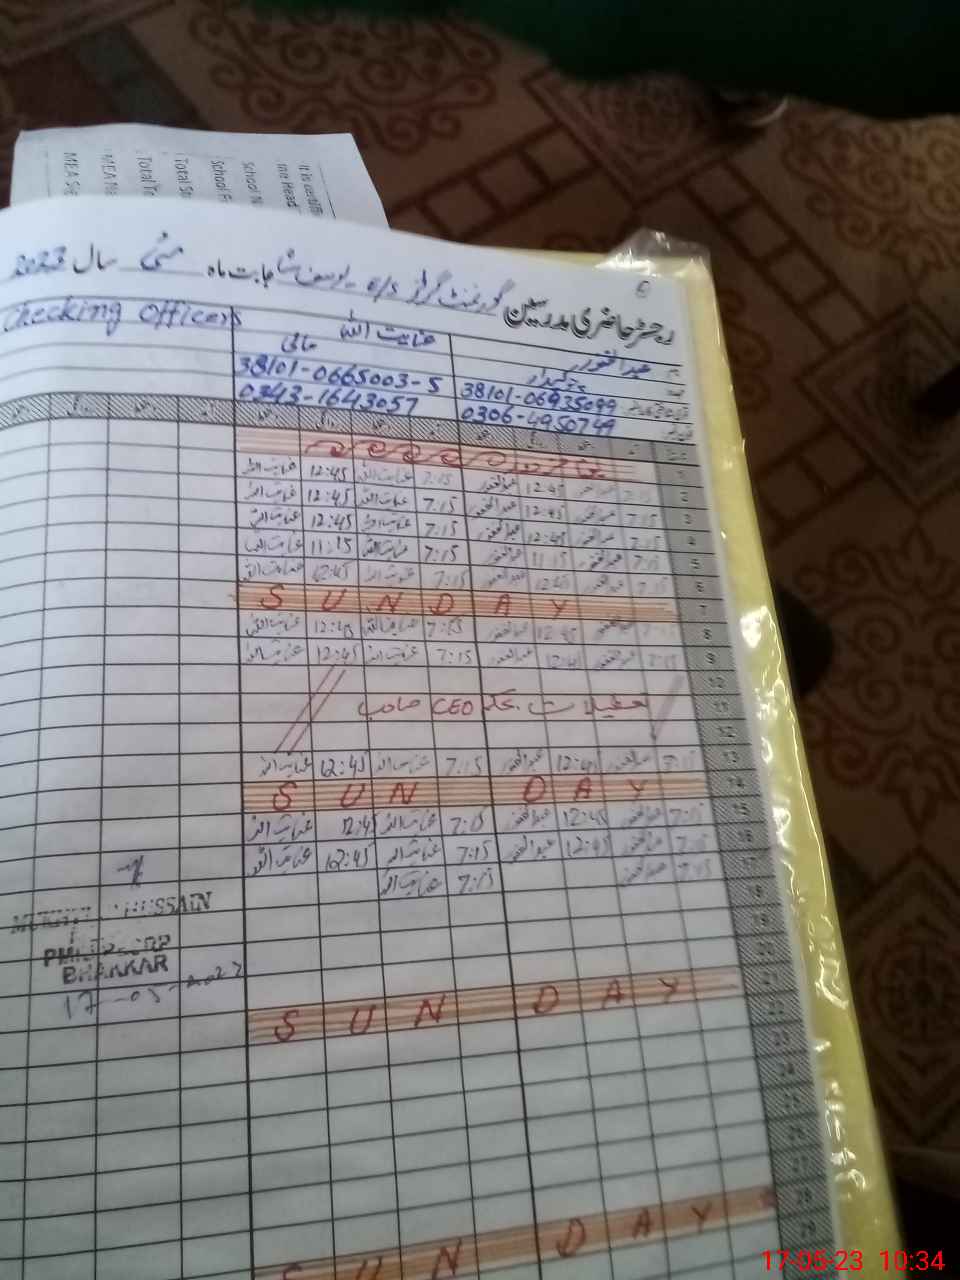 It is certifi
ture Head
School N
School E
Total St
Total Te
MEA Na
MEA Se
رجسٹر حاضری مدرسین گورنمنٹ گرلز e/s یوسف شاہ بابت ماہ مئی سال 2023
عبدالغفور عنایت اللہ Checking Officers
چوکیدار مالی
38101-0665003-5
38101-06935099
0343-1643057
0306-4950749
1
2 7:15 عبدالغفور 12:45 عبدالغفور 7:15 عنایت اللہ 12:45 عنایت اللہ
3 7:15 عبدالغفور 12:45 عبدالغفور 7:15 عنایت اللہ 12:45 عنایت اللہ
4 7:15 عبدالغفور 12:45 عبدالغفور 7:15 عنایت اللہ 12:45 عنایت اللہ
5 7:15 عبدالغفور 11:15 عبدالغفور 7:15 عنایت اللہ 11:15 عنایت اللہ
6 7:15 عبدالغفور 12:45 عبدالغفور 7:15 عنایت اللہ 12:45 عنایت اللہ
7 SUNDAY
8 7:15 عبدالغفور 12:45 عبدالغفور 7:15 عنایت اللہ 12:45 عنایت اللہ
9 7:15 عبدالغفور 12:45 عبدالغفور 7:15 عنایت اللہ 12:45 عنایت اللہ
11 تعطیلات بحکم CEO صاحب
12
13 7:15 عبدالغفور 12:45 عبدالغفور 7:15 عنایت اللہ 12:45 عنایت اللہ
14 SUN DAY
15 7:15 عبدالغفور 12:45 عبدالغفور 7:15 عنایت اللہ 12:45 عنایت اللہ
16 7:15 عبدالغفور 12:45 عبدالغفور 7:15 عنایت اللہ 12:45 عنایت اللہ
17 7:15 عبدالغفور 7:15 عنایت اللہ
18
19
20
21 SUN DAY
22
23
24
28 SUN DAY
29
HUSSAIN
BHAKKAR
17-05-2023
17-05-23 10:34